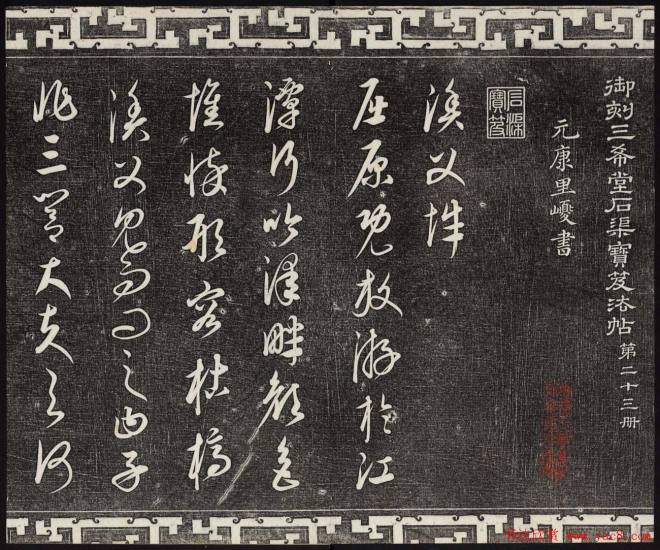 御刻三希堂石渠寶笈法帖 第二十三册
元康里巎書
石渠寶笈
漁父辭
屈原既放游於江
潭行吟澤畔顏色
憔悴形容枯槁
漁父見而問之曰子
非三閭大夫與何
www.yac8.com